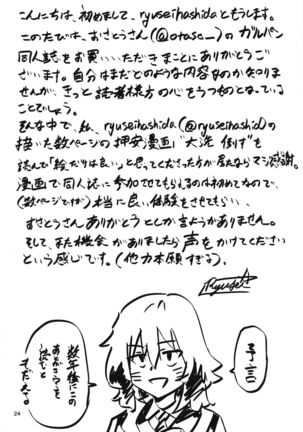 こんにちは、初めまして、ryuseihashidaともうします。
このたびは、おさとうさん(@otaso_)の ガルパン
同人誌をお買いいただきまことにありがとうござ
います。自分はまだどのような内容なのか知りま
せんが、きっと読者様方の心をうつものとなっている
ことでしょう。
そんな中で、私、ryuseihashida(@ryuseihashid)の
描いた数ページの押安漫画"大洗 倒す"を
読んで「絵だけは良い」と思ってくださった方が居たならマジ感謝。
漫画で同人誌に参加させてもらえるのは初めてなので、
(数ページですが)本当に良い体験をさせてもらい、
おさとうさんありがとうとしか言いようがありません。
そして、また機会がありましたら声をかけてください
という感じです。(他力本願すぎる)。
Ryusei
予言
数年後にこの
あとがきを
読むと
24